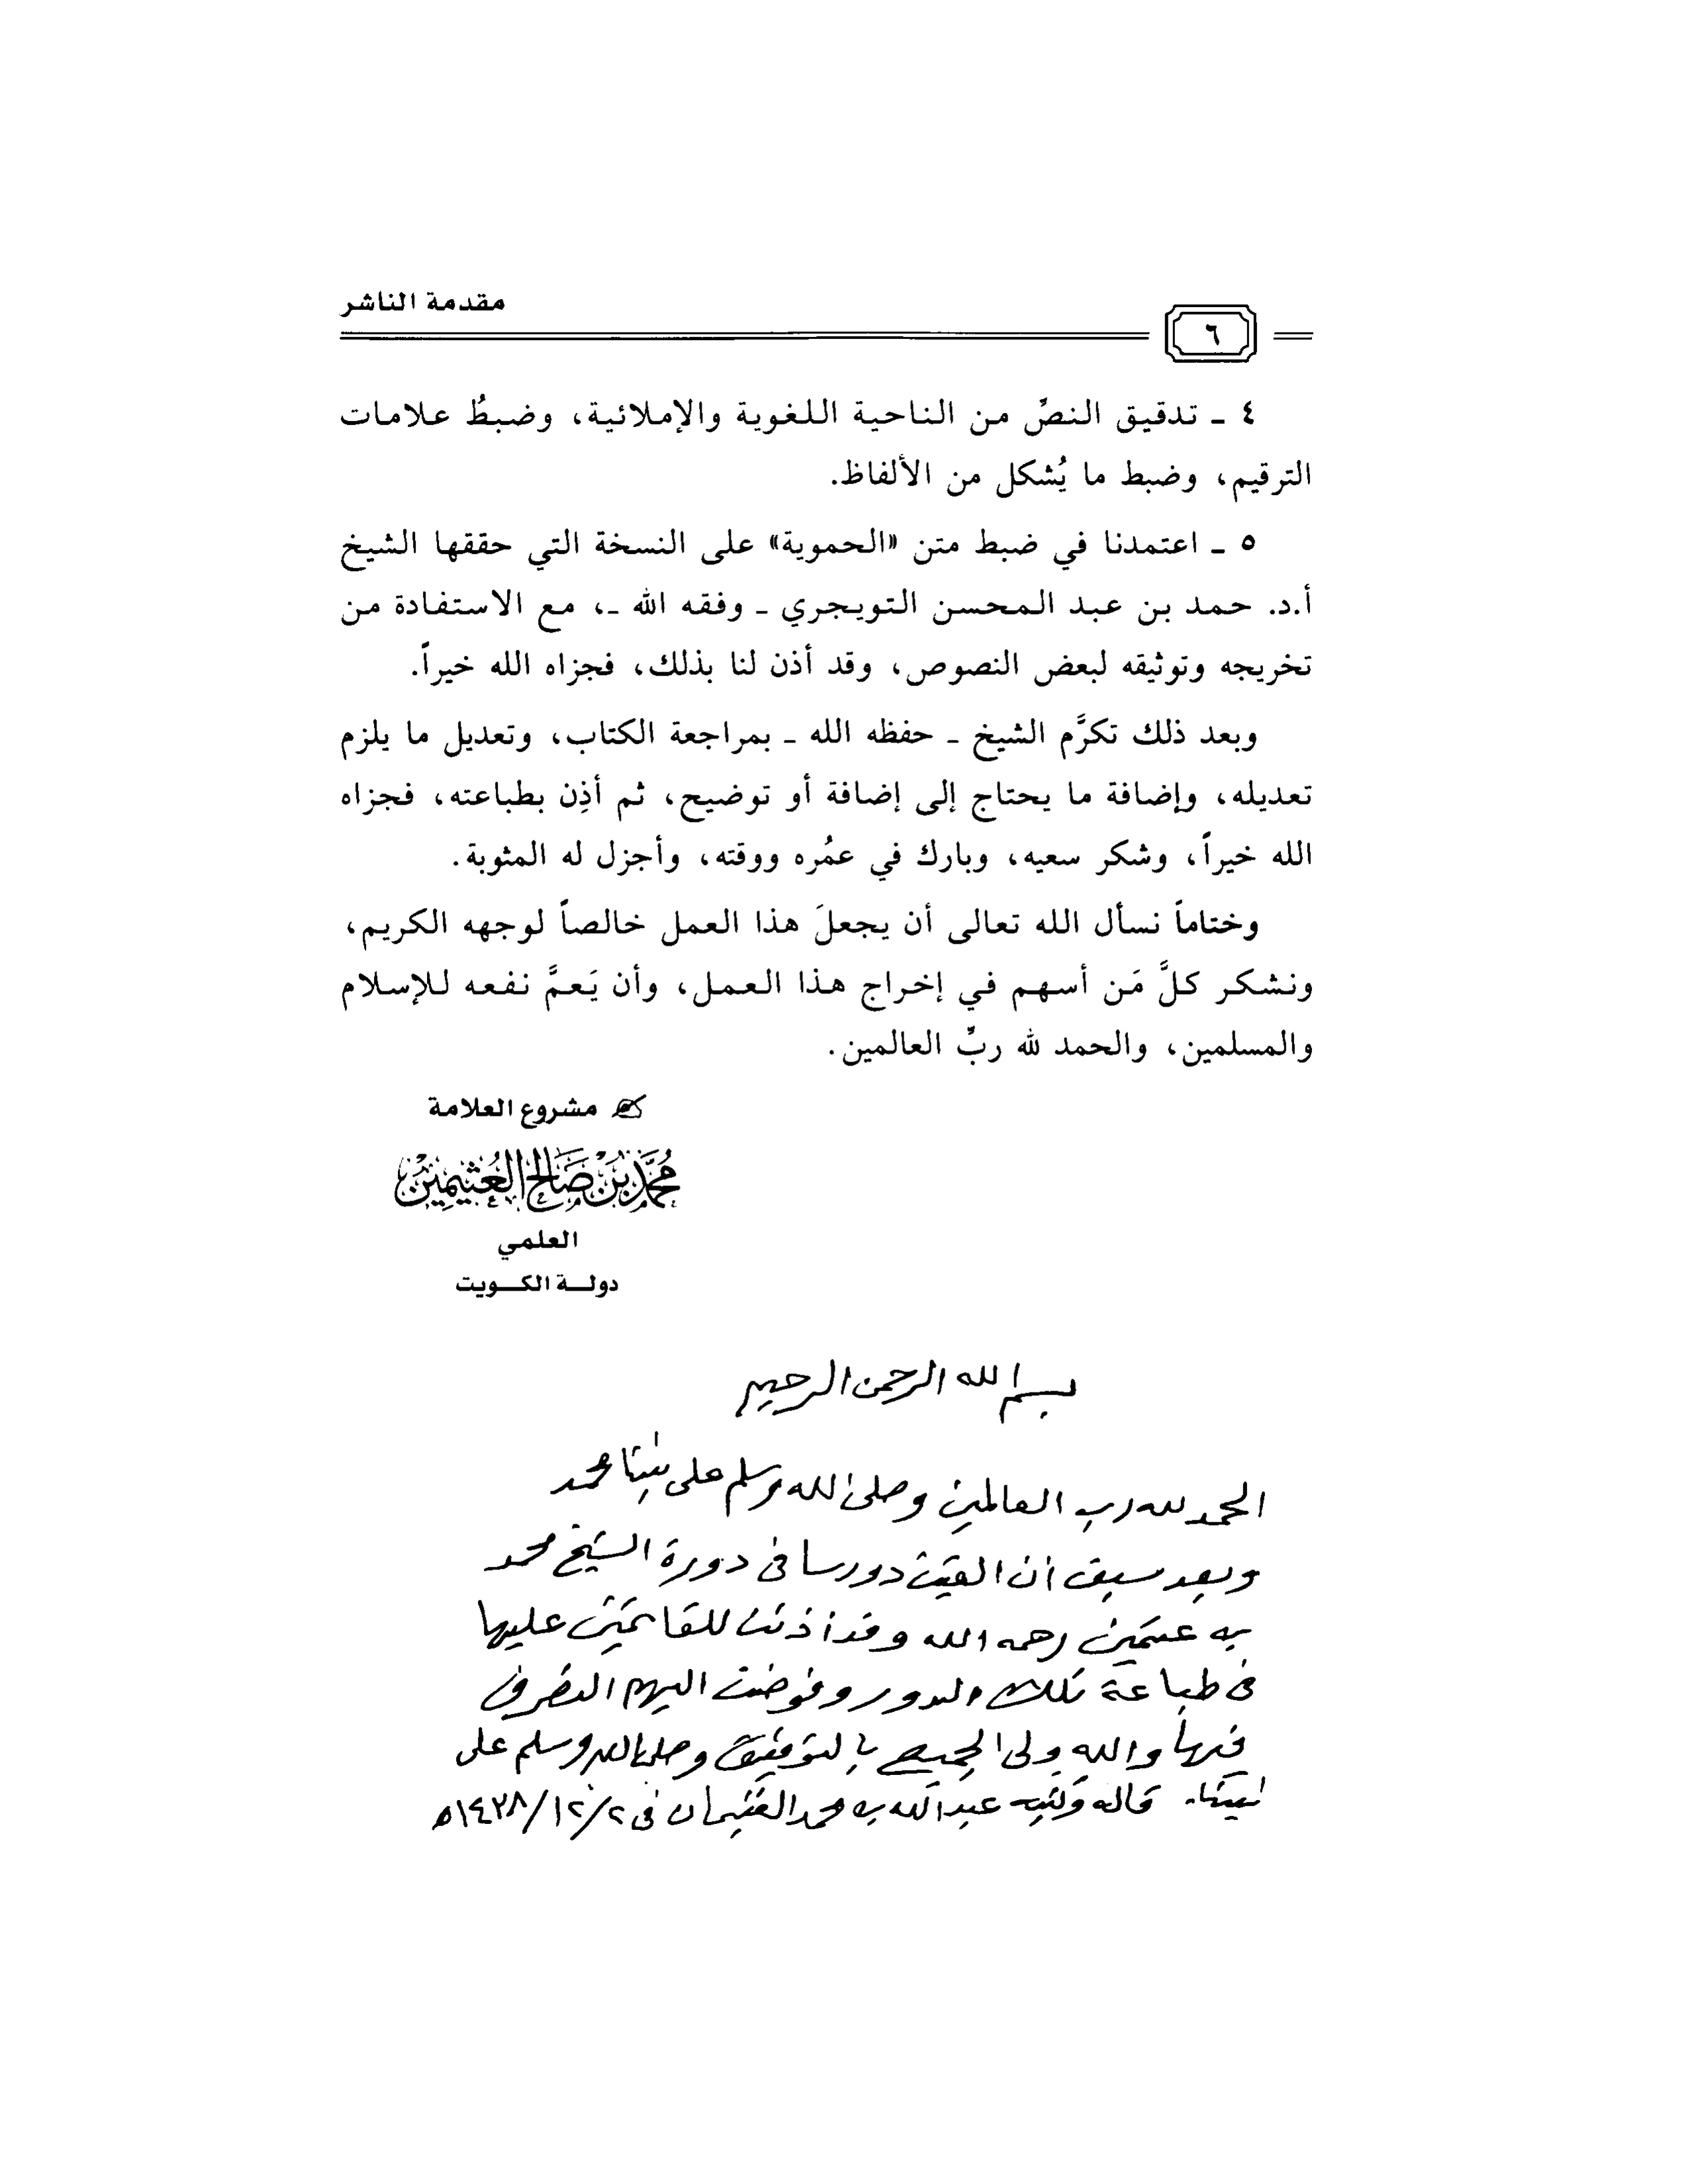 مقدمة الناشر
٦
٤ ـ تدقيق النصِّ من الناحية اللغوية والإملائية، وضبطُ علامات
الترقيم، وضبط ما يُشكل من الألفاظ.
٥ ـ اعتمدنا في ضبط متن «الحموية» على النسخة التي حققها الشيخ
أ.د. حمد بن عبد المحسن التويجري ـ وفقه الله ـ، مع الاستفادة من
تخريجه وتوثيقه لبعض النصوص، وقد أذن لنا بذلك، فجزاه الله خيراً.
وبعد ذلك تكرَّم الشيخ ـ حفظه الله ـ بمراجعة الكتاب، وتعديل ما يلزم
تعديله، وإضافة ما يحتاج إلى إضافة أو توضيح، ثم أذِن بطباعته، فجزاه
الله خيراً، وشكر سعيه، وبارك في عمُره ووقته، وأجزل له المثوبة.
وختاماً نسأل الله تعالى أن يجعلَ هذا العمل خالصاً لوجهه الكريم،
ونشكر كلَّ مَن أسهم في إخراج هذا العمل، وأن يَعمَّ نفعه للإسلام
والمسلمين، والحمد لله ربِّ العالمين.
مشروع العلامة
مُحَمَّد بْن صَالِح العُثَيمِين
العلمي
دولة الكويت
بسم الله الرحمن الرحيم
الحمد لله رب العالمين وصلى الله وسلم على نبينا محمد
وبعد سبق أن ألقيت دورسا في دورة الشيخ محمد
بن عثيمين رحمه الله وقد أذنت للقائمين عليها
في طباعة تلك الدور وفوضت اليهم التصرف
فيها والله ولي الجميع بالتوفيق وصلى الله وسلم على
نبينا. قاله وكتبه عبد الله بن محمد الغنيمان في ٢/١٢/١٤٣٨ه